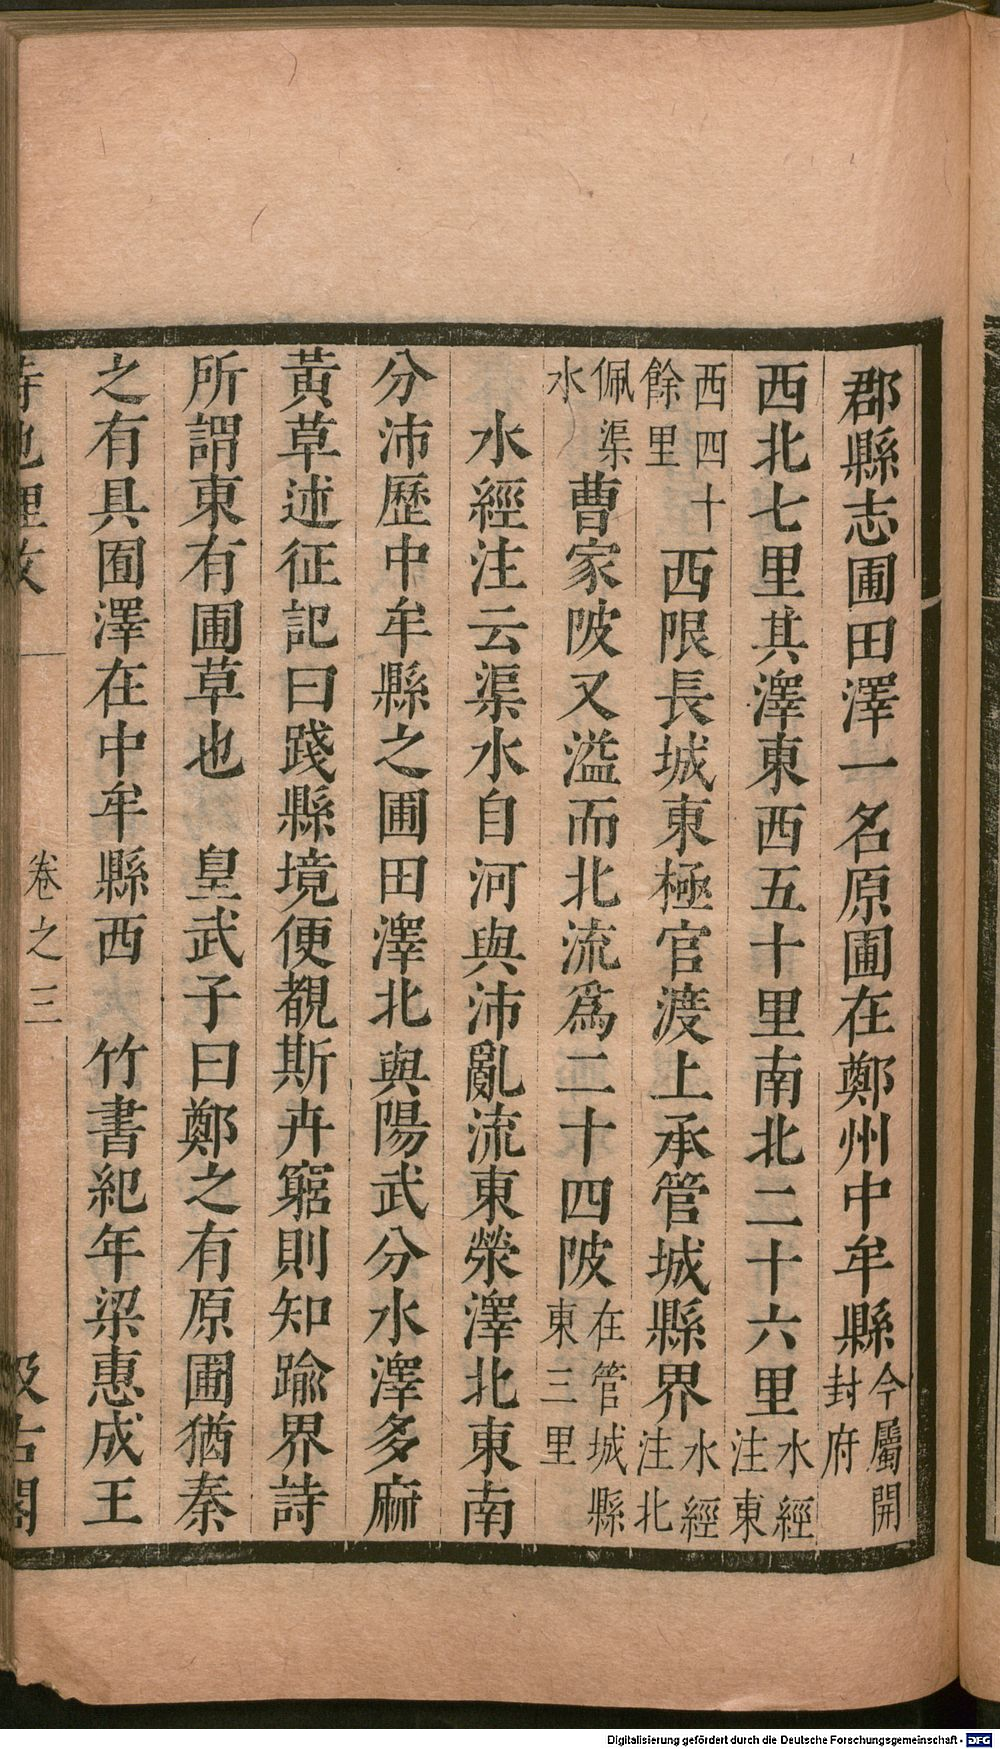 郡縣志圃田澤一名原圃在鄭州中牟縣今屬開封府
西北七里其澤東西五十里南北二十六里水經注東
西四十餘里西限長城東極官渡上承管城縣界水經注北
佩渠水曹家陂又溢而北流爲二十四陂在管城縣東三里
水經注云渠水自河與沛亂流東滎澤北東南
分沛歷中牟縣之圃田澤北與陽武分水澤多麻
黃草述征記曰踐縣境便覩斯卉窮則知踰界詩
所謂東有圃草也 皇武子曰鄭之有原圃猶秦
之有具囿澤在中牟縣西 竹書紀年梁惠成王
詩地理攷 卷之三 汲古閣
Digitalisierung gefördert durch die Deutsche Forschungsgemeinschaft - DFG